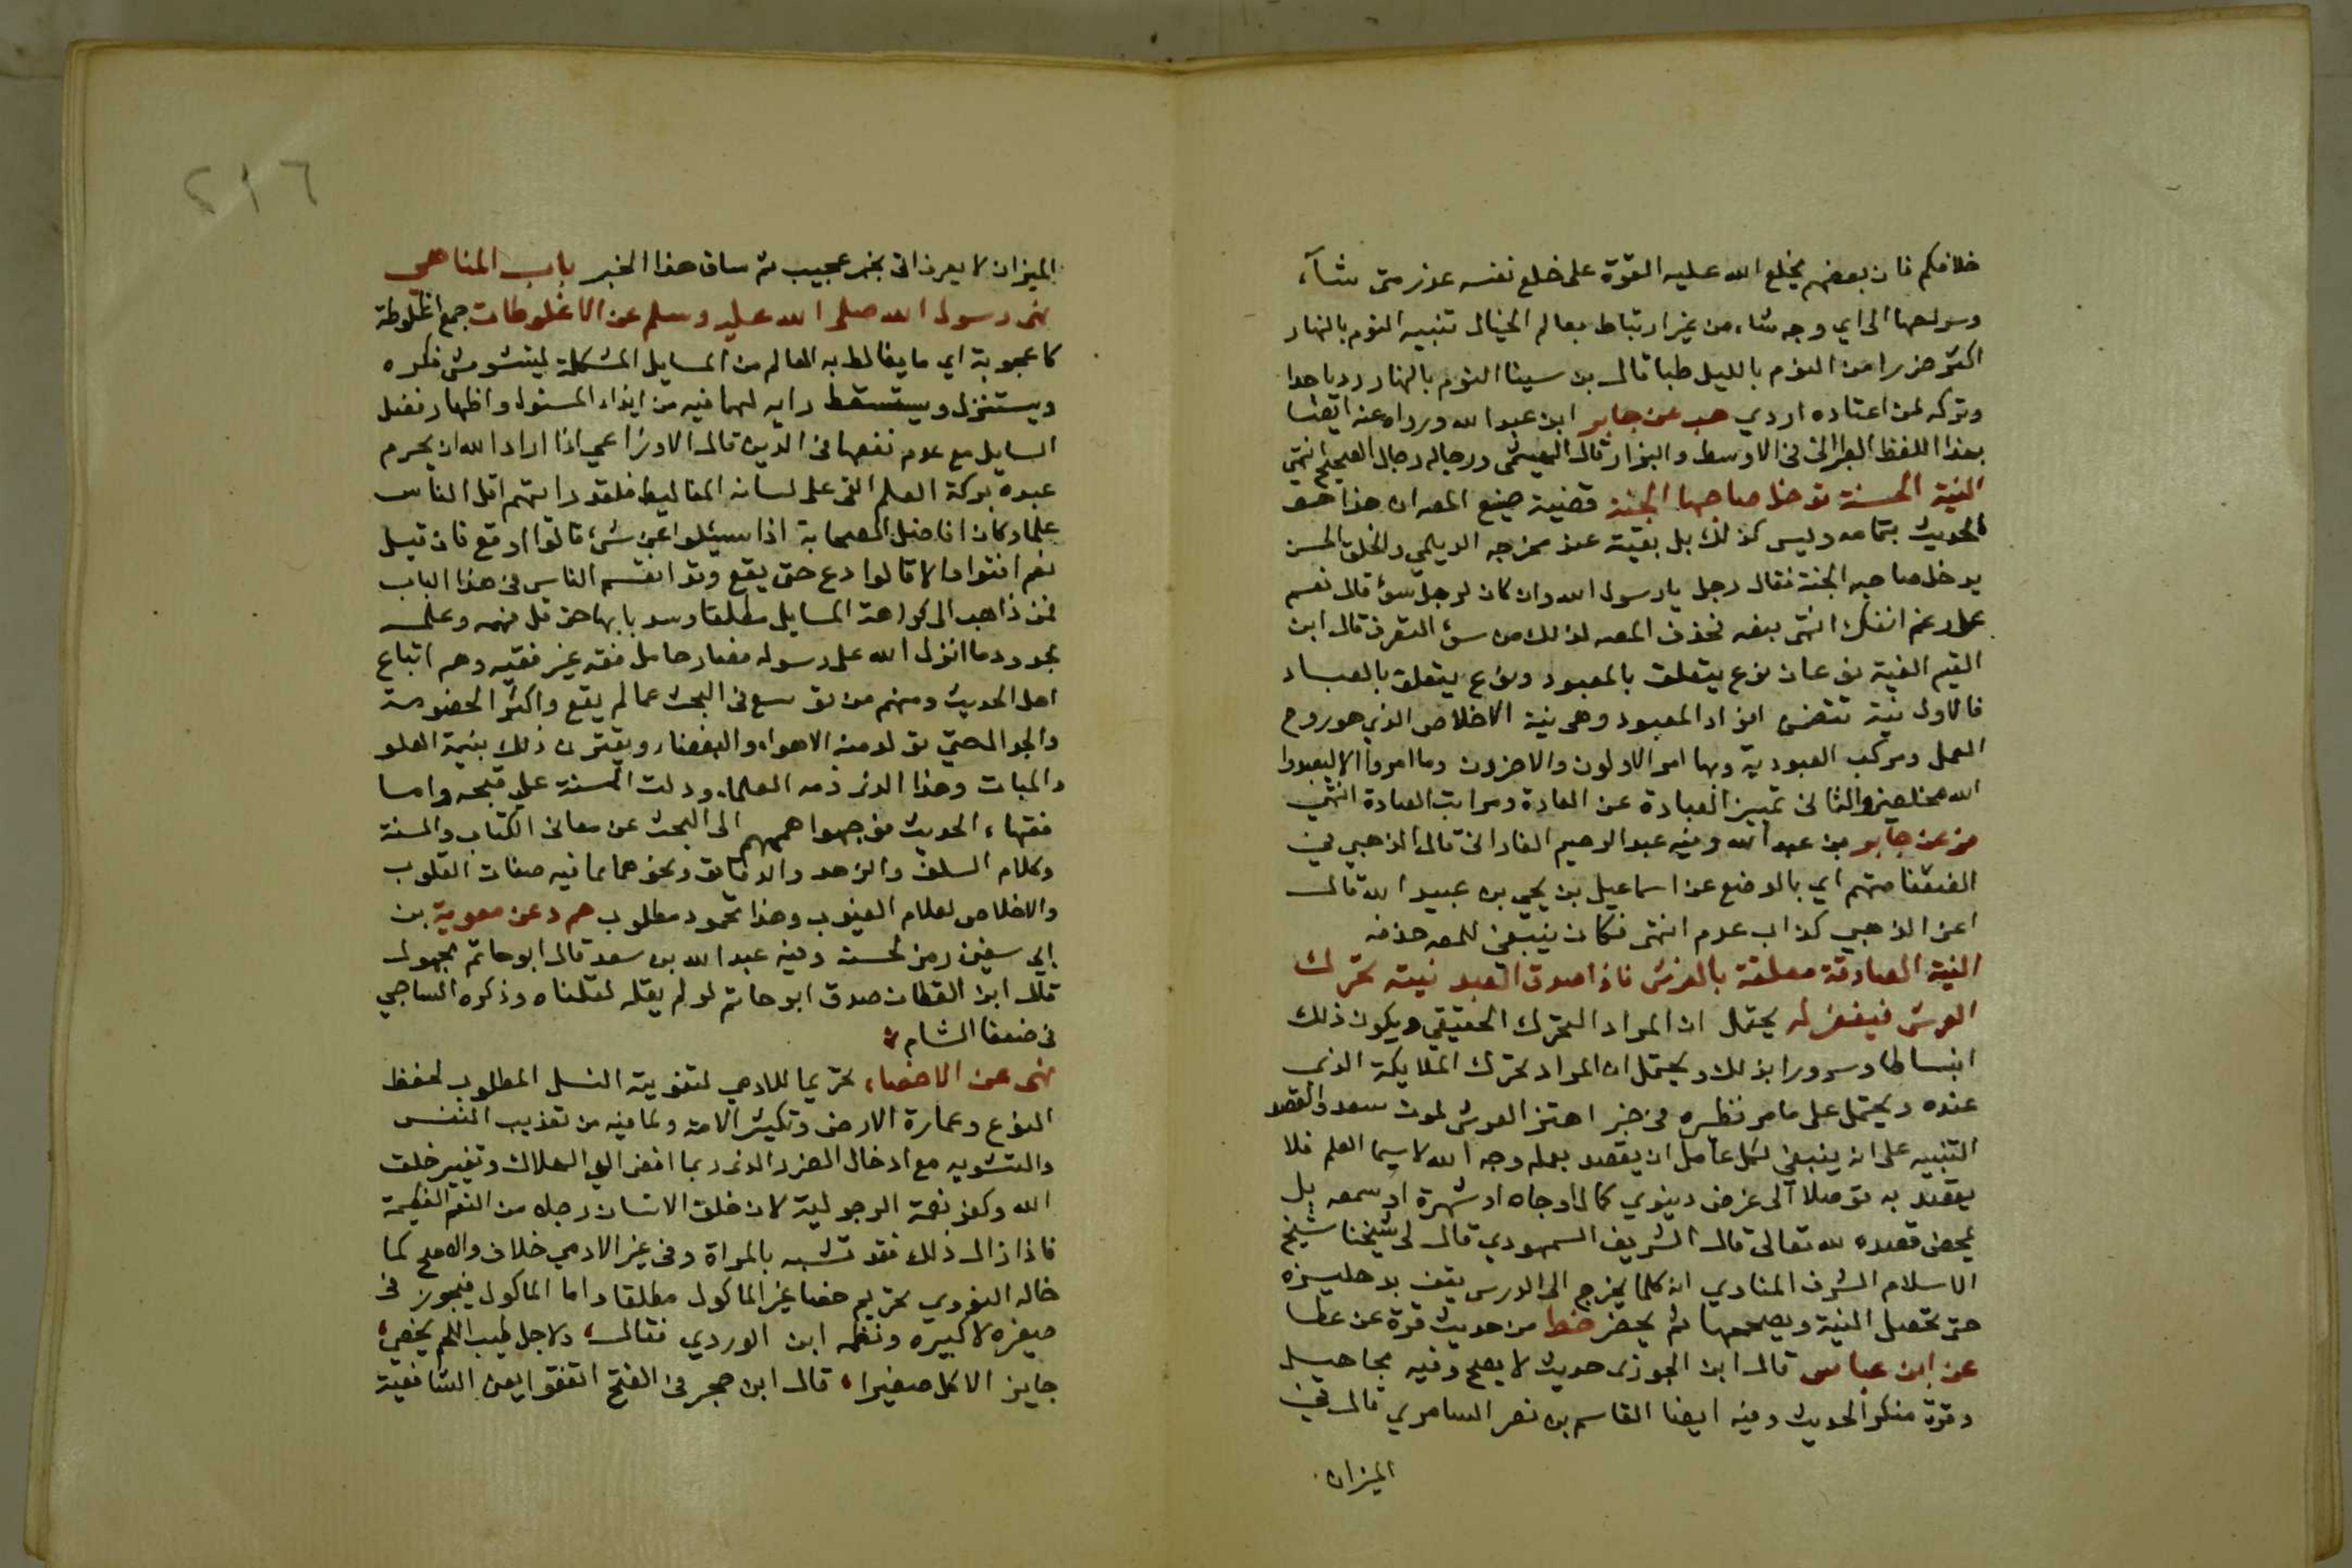 خلافكم فان بعضهم يخلع الله عليه القوة على خلع نفسه عند متى شآء
وسولها الى اي وجه شاء من غير ارتباط بعالم الخيال تنبيه النوم بالنهار
اكثر ضررا من النوم بالليل طبا قال بن سينا النوم بالنهار ردي جدا
وتركه لمن اعتاده اردي هب عن جابر ابن عبد الله ورواه عنه ايضا
بهذا اللفظ الطبراني في الاوسط والبزار قال الهيثمي ورجاله رجال الصحيح انتهى
النية الحسنة تدخل صاحبها الجنة قضية صنيع المص ان هذا هو
الحديث بتمامه وليس كذلك بل بقيته عند مخرجه الديلمي والخلق الحسن
يدخل صاحبه الجنة فقال رجل يا رسول الله وان كان رجل سوء قال نعم
على رغم انفك انتهى بنصه فحذف المص لذلك من سوء التصرف قال ابن
القيم النية نوعان نوع يتعلق بالمعبود ونوع يتعلق بالعباد
فالاول نية تتضمن افراد المعبود وهي نية الاخلاص الذي هو روح
العمل ومركب العبودية وبها امر الاولون والاخرون وما امروا الا ليعبدوا
الله مخلصين والثاني تمييز العبادة عن العادة ومراتب العبادة انتهى
فر عن جابر بن عبد الله وفيه عبد الرحيم الفارابي قال الذهبي في
الضعفا متهم اي بالوضع عن اسماعيل بن يحي بن عبيد الله قال
اعني الذهبي كذاب عدم انتهى فكان ينبغي للمص حذفه
النية الصادقة معلقة بالعرش فاذا صدق العبد نيته تحرك
العرش فيغفر له يحتمل ان المراد التحرك الحقيقي ويكون ذلك
انبساطا وسرورا بذلك ويحتمل ان المراد تحرك الملايكة الذى
عنده ويحتمل على ما مر نظيره في خبر اهتز العرش لموت سعد والقصد
التنبيه على انه ينبغي لكل عامل ان يقصد بعمله وجه الله لا سيما العلم فلا
يقصد به توصلا الى غرض دينوي كمال او جاه او شهرة او سمعه بل
يمحض قصده لله تعالى قال الشريف السمهودي قال لى شيخنا شيخ
الاسلام الشرف المناوي انه كلما يخرج الى الدرس يقف بدهليزه
حتى تحصل النية ويصححها ثم يحضر خط من حديث قرة عن عطا
عن ابن عباس قال ابن الجوزي حديث لا يصح وفيه مجاهيل
وقرة منكر الحديث وفيه ايضا القاسم بن نصر السامري قال في
الميزان
٢١٦
الميزان لا يعرف اتى بخبر عجيب ثم ساق هذا الخبر باب المناهي
نهى رسول الله صلى الله عليه وسلم عن الاغلوطات جمع اغلوطة
كاعجوبة اي ما يغالط به العالم من المسايل المشكلة ليتشوش فكره
ويستنزل ويستسقط رايه لها فيه من ايذاء المسئول واظهار فضل
السايل مع عدم نفعها في الدين قال الاوزاعي اذا اراد الله ان يحرم
عبده بركة العلم القى على لسانه المغاليط فلقد رايتهم اقل الناس
علما وكان افاضل الصحابة اذا سيئلوا عن شىء قالوا اوقع فان قيل
نعم افتوا والا قالوا دع حتى يقع وقد انقسم الناس في هذا الباب
فمن ذاهب الى كراهة المسايل مطلقا وسد بابها حتى قل فهمه وعلمه
بحدود ما انزل الله على رسوله فصار حامل فقه غير فقيه وهم اتباع
اهل الحديث ومنهم من توسع في البحث عما لم يقع واكثر الخصومة
والجدال حتى تولد منه الاهواء والبغضاء ويقترن ذلك بنية العلو
والمباهات وهذا الذى ذمه العلماء ودلت السنة على قبحه واما
فقهاء الحديث فوجهوا هممهم الى البحث عن معاني الكتاب والسنة
وكلام السلف والزهد والدقايق ونحوهما مما فيه صفات القلوب
والاخلاص لعلام الغيوب وهذا محمود مطلوب هم د عن معوية بن
ابي سفين رمز لحسنه وفيه عبد الله بن سعد قال ابو حاتم مجهول
قال ابن القطان صدق ابو حاتم لو لم يقله لقلناه وذكره الساجي
في ضعفا الشام
نهى عن الاخصاء تحريما للادمي لتفويته النسل المطلوب لحفظ
النوع وعمارة الارض وتكثير الامة ولما فيه من تعذيب النفس
والتشويه مع ادخال الضرر الذى ربما افضى الى الهلاك وتغيير خلق
الله وكفر نعمة الرجولية لان خلق الانسان رجلا من النعم العظيمة
فاذا زال ذلك فقد تشبه بالمراة وفي غير الادمي خلاف والاصح كما
قاله النووي تحريم خصا غير الماكول مطلقا واما الماكول فيجوز في
صغره لا كبيره ونظمه ابن الوردي فقال، ولاجل طيب اللحم يخصى،
جايز الاكل صغيرا، قال ابن حجر في الفتح اتفقوا يعني الشافعية